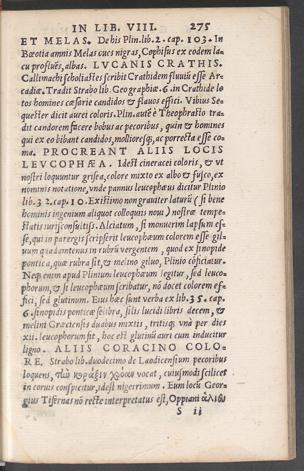 IN LIB. VIII. 275
ET MELAS. De his Plin. lib. 2. cap. 103. In
Bœotia amnis Melas oues nigras, Cephisus ex eodem la-
cu profluẽs, albas. LVCANIS CRATHIS.
Callimachi scholiastes scribit Crathidem fluuiũ esse Ar-
cadiæ. Tradit Strabo lib. Geographiæ. 6. in Crathide lo
tos homines cæsarie candidos & flauos effici. Vibius Se-
quester dicit aurei coloris. Plin. autẽ è Theophrasto tra-
dit candorem facere bobus ac pecoribus, quin & homines
qui ex eo bibant candidos, molliores que, ac porrecta esse co-
ma. PROCREANT ALIIS LOCIS
LEVCOPHÆA. Idest cineracei coloris, & vt
nostri loquuntur grisea, colore mixto ex albo & fusco, ex
nominis notatione, vnde pannus leucophæus dicitur Plinio
lib. 32. cap. 10. Existimo non grauiter laturũ ( si bene
hominis ingenium aliquot colloquijs noui ) nostræ tempe-
statis iurisconsultiss. Alciatum, si monuerim lapsum es-
se, qui in parergis scripserit leucophæum colorem esse gil-
uum quadantenus in rubrũ vergentem, quod ex sinopide
pontica, quæ rubra sit, & melino giluo, Plinio cõficiatur.
Neq; enim apud Plinium leucophæum legitur, sed leuco-
phorum, & si leucophæum scribatur, nõ docet colorem ef-
fici, sed glutinum. Eius hæc sunt verba ex lib. 35. cap.
6. sinopidis ponticæ selibra, silis lucidi libris decem, &
melini Græcensis duabus mixtis, tritisq; vnà per dies
xii. leucophorum fit, hoc est glutinũ auri cum inducitur
ligno. ALIIS CORACINO COLO-
RE. Strabo lib. duodecimo de Laodicensium pecoribus
loquens, τὼ κοραξὶν χρόαν vocat, cuiusmodi scilicet
in coruis conspicitur, idest nigerrimum. Eum locũ Geor-
gius Tifernas nõ recte interpretatus est, Oppiani ἁλιευ
S ii